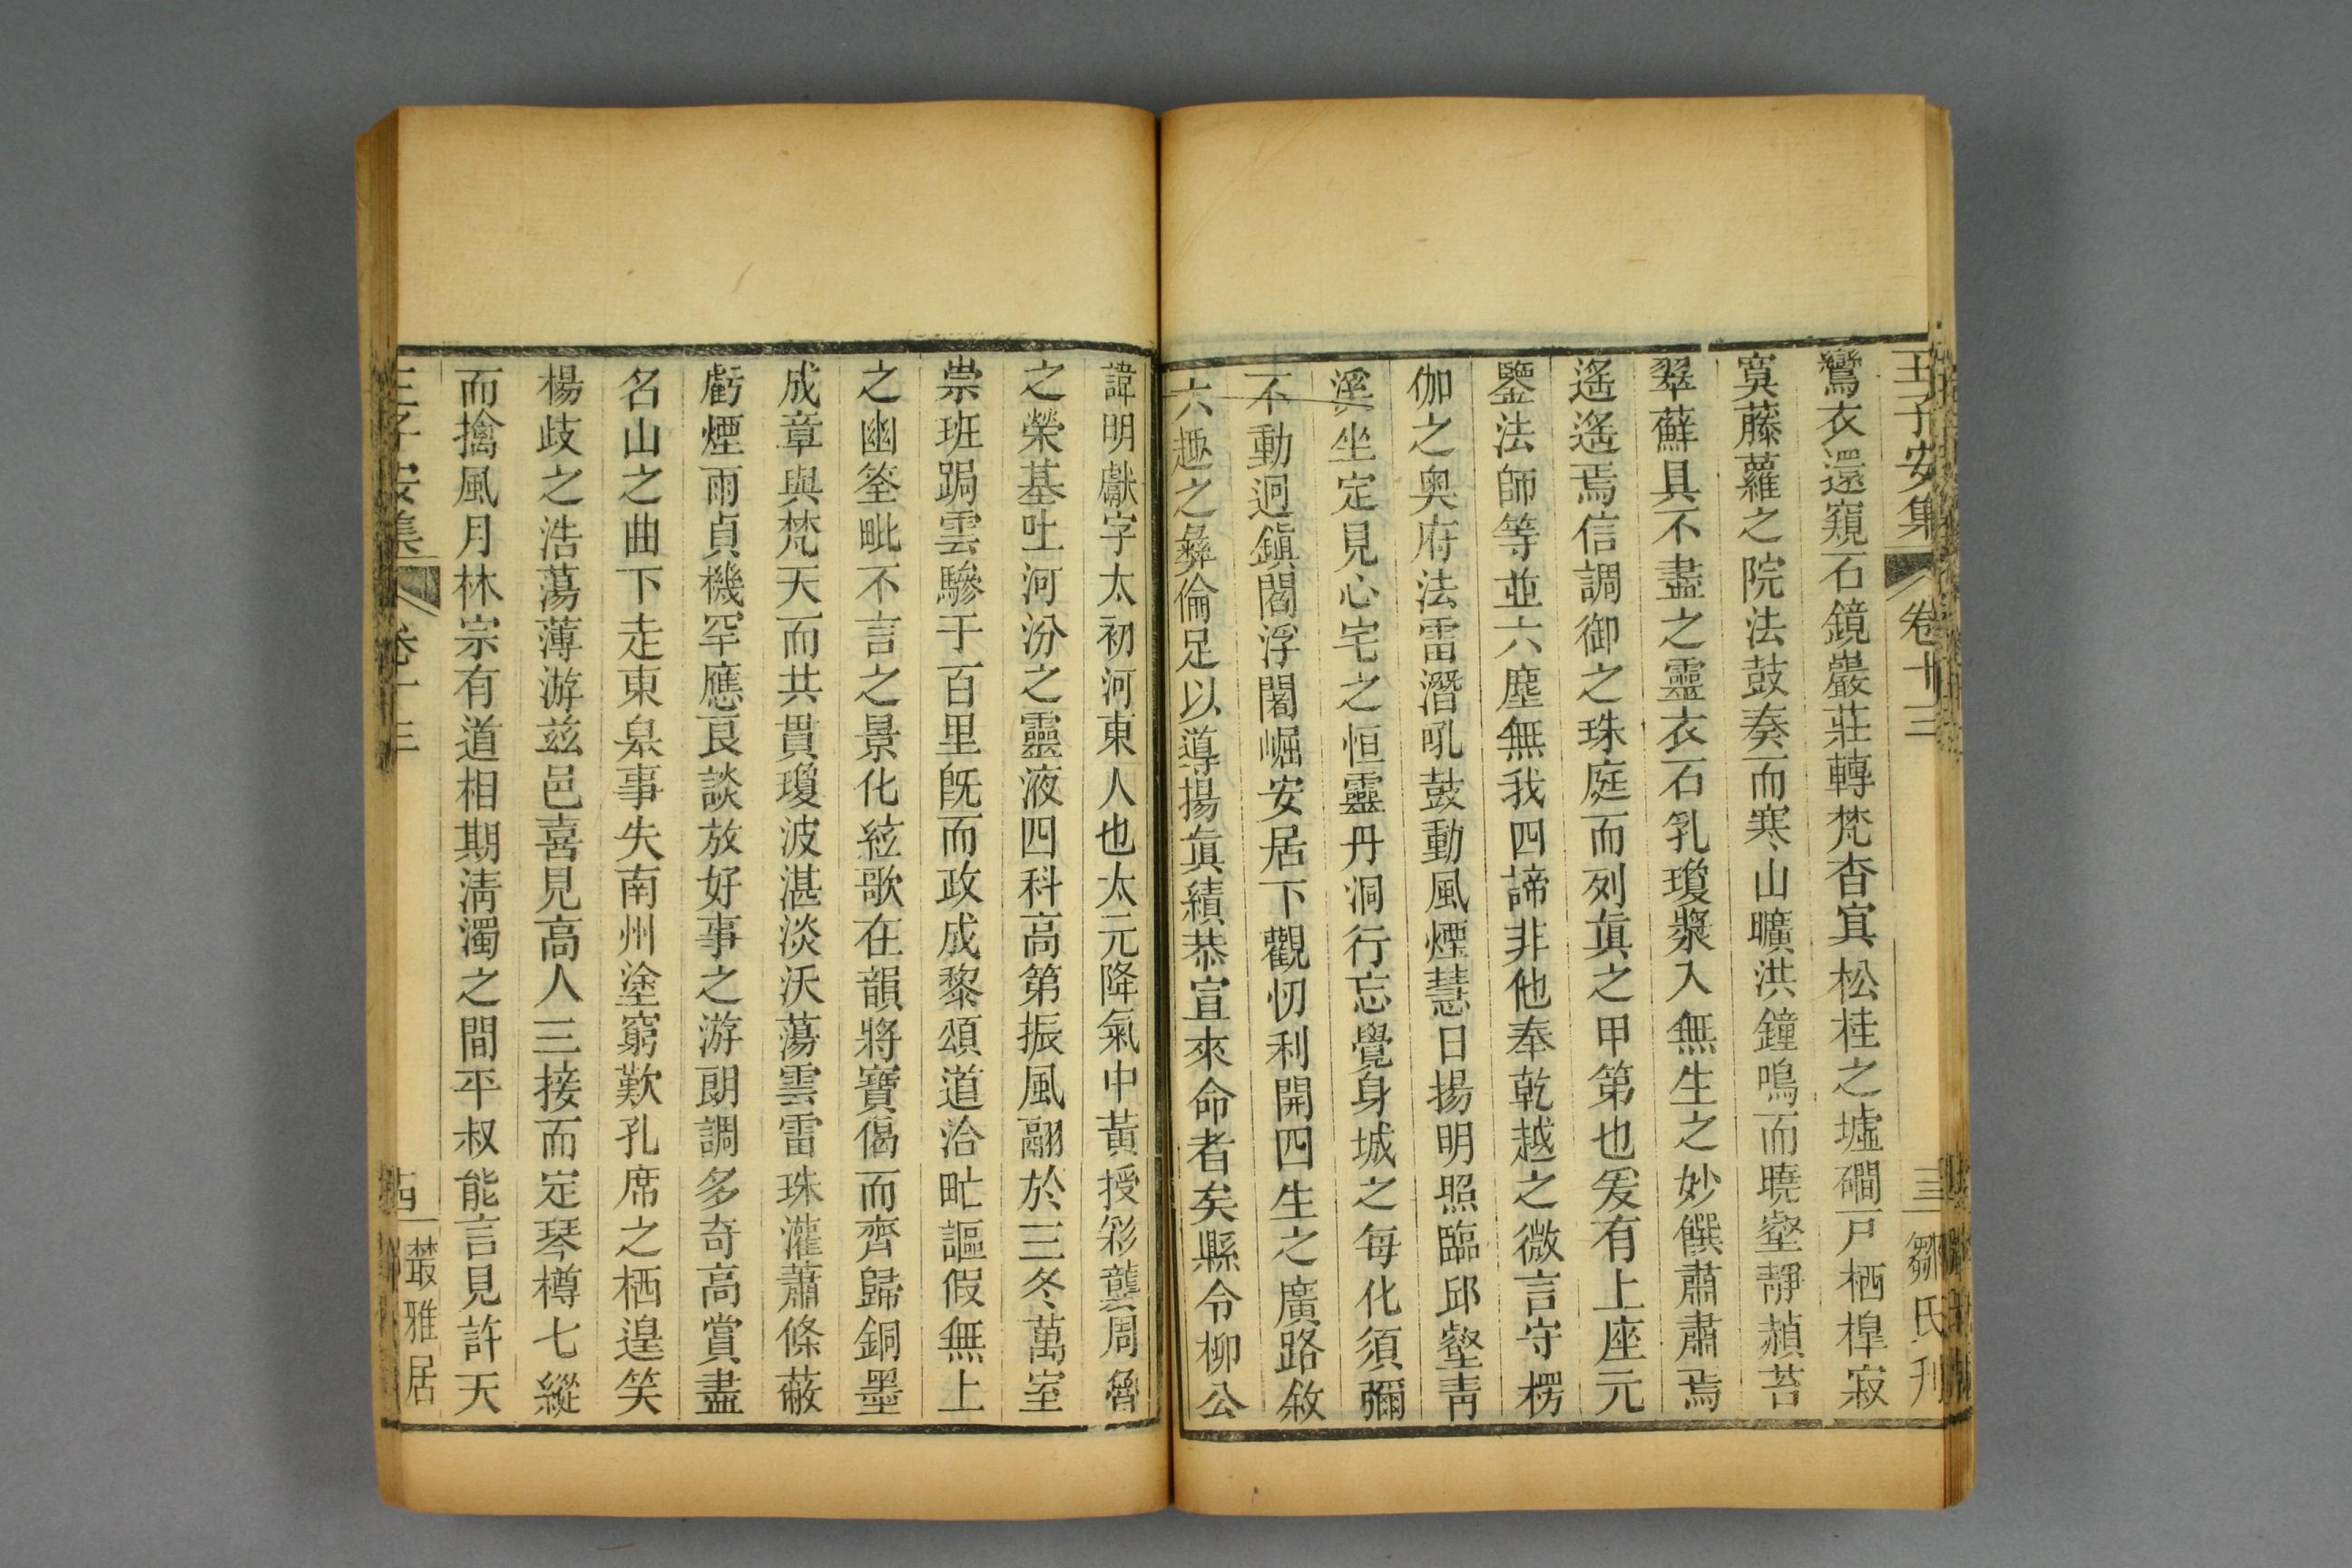 王子安集 卷十三 三 鄒氏刋
鸞衣還窺石鏡巖莊轉梵杳㝠松桂之墟磵戸栖榥寂
寞藤蘿之院法鼓奏而寒山曠洪鐘鳴而曉壑靜頳苔
翠蘚具不盡之靈衣石乳瓊漿入無生之妙饌蕭肅焉
遙遙焉信調御之珠庭而列眞之甲第也爰有上座元
鑒法師等並六塵無我四諦非他奉乾越之微言守楞
伽之奥府法雷潛吼鼓動風煙慧日揚明照臨邱壑青
溪坐定見心宅之恒靈丹洞行忘覺身城之每化須彌
不動迥鎭閻浮闍崛安居下觀忉利開四生之廣路敘
六趣之彝倫足以導揚眞績恭宣來命者矣縣令柳公
諱明獻字太初河東人也太元降氣中黃授彩龔周魯
之榮基吐河汾之靈液四科高第振風翮於三冬萬室
崇班跼雲驂于百里旣而政成黎頌道洽甿謳假無上
之幽筌毗不言之景化絃歌在韻將寶偈而齊歸銅墨
成章與梵天而共貫瓊波湛淡沃蕩雲雷珠灌蕭條蔽
虧煙雨貞機罕應良談放好事之游朗調多奇高賞盡
名山之曲下走東臯事失南州塗窮歎孔席之栖遑笑
楊歧之浩蕩薄游兹邑喜見高人三接而定琴樽七縱
而擒風月林宗有道相期淸濁之間平叔能言見許天
王子安集 卷十三 叢雅居